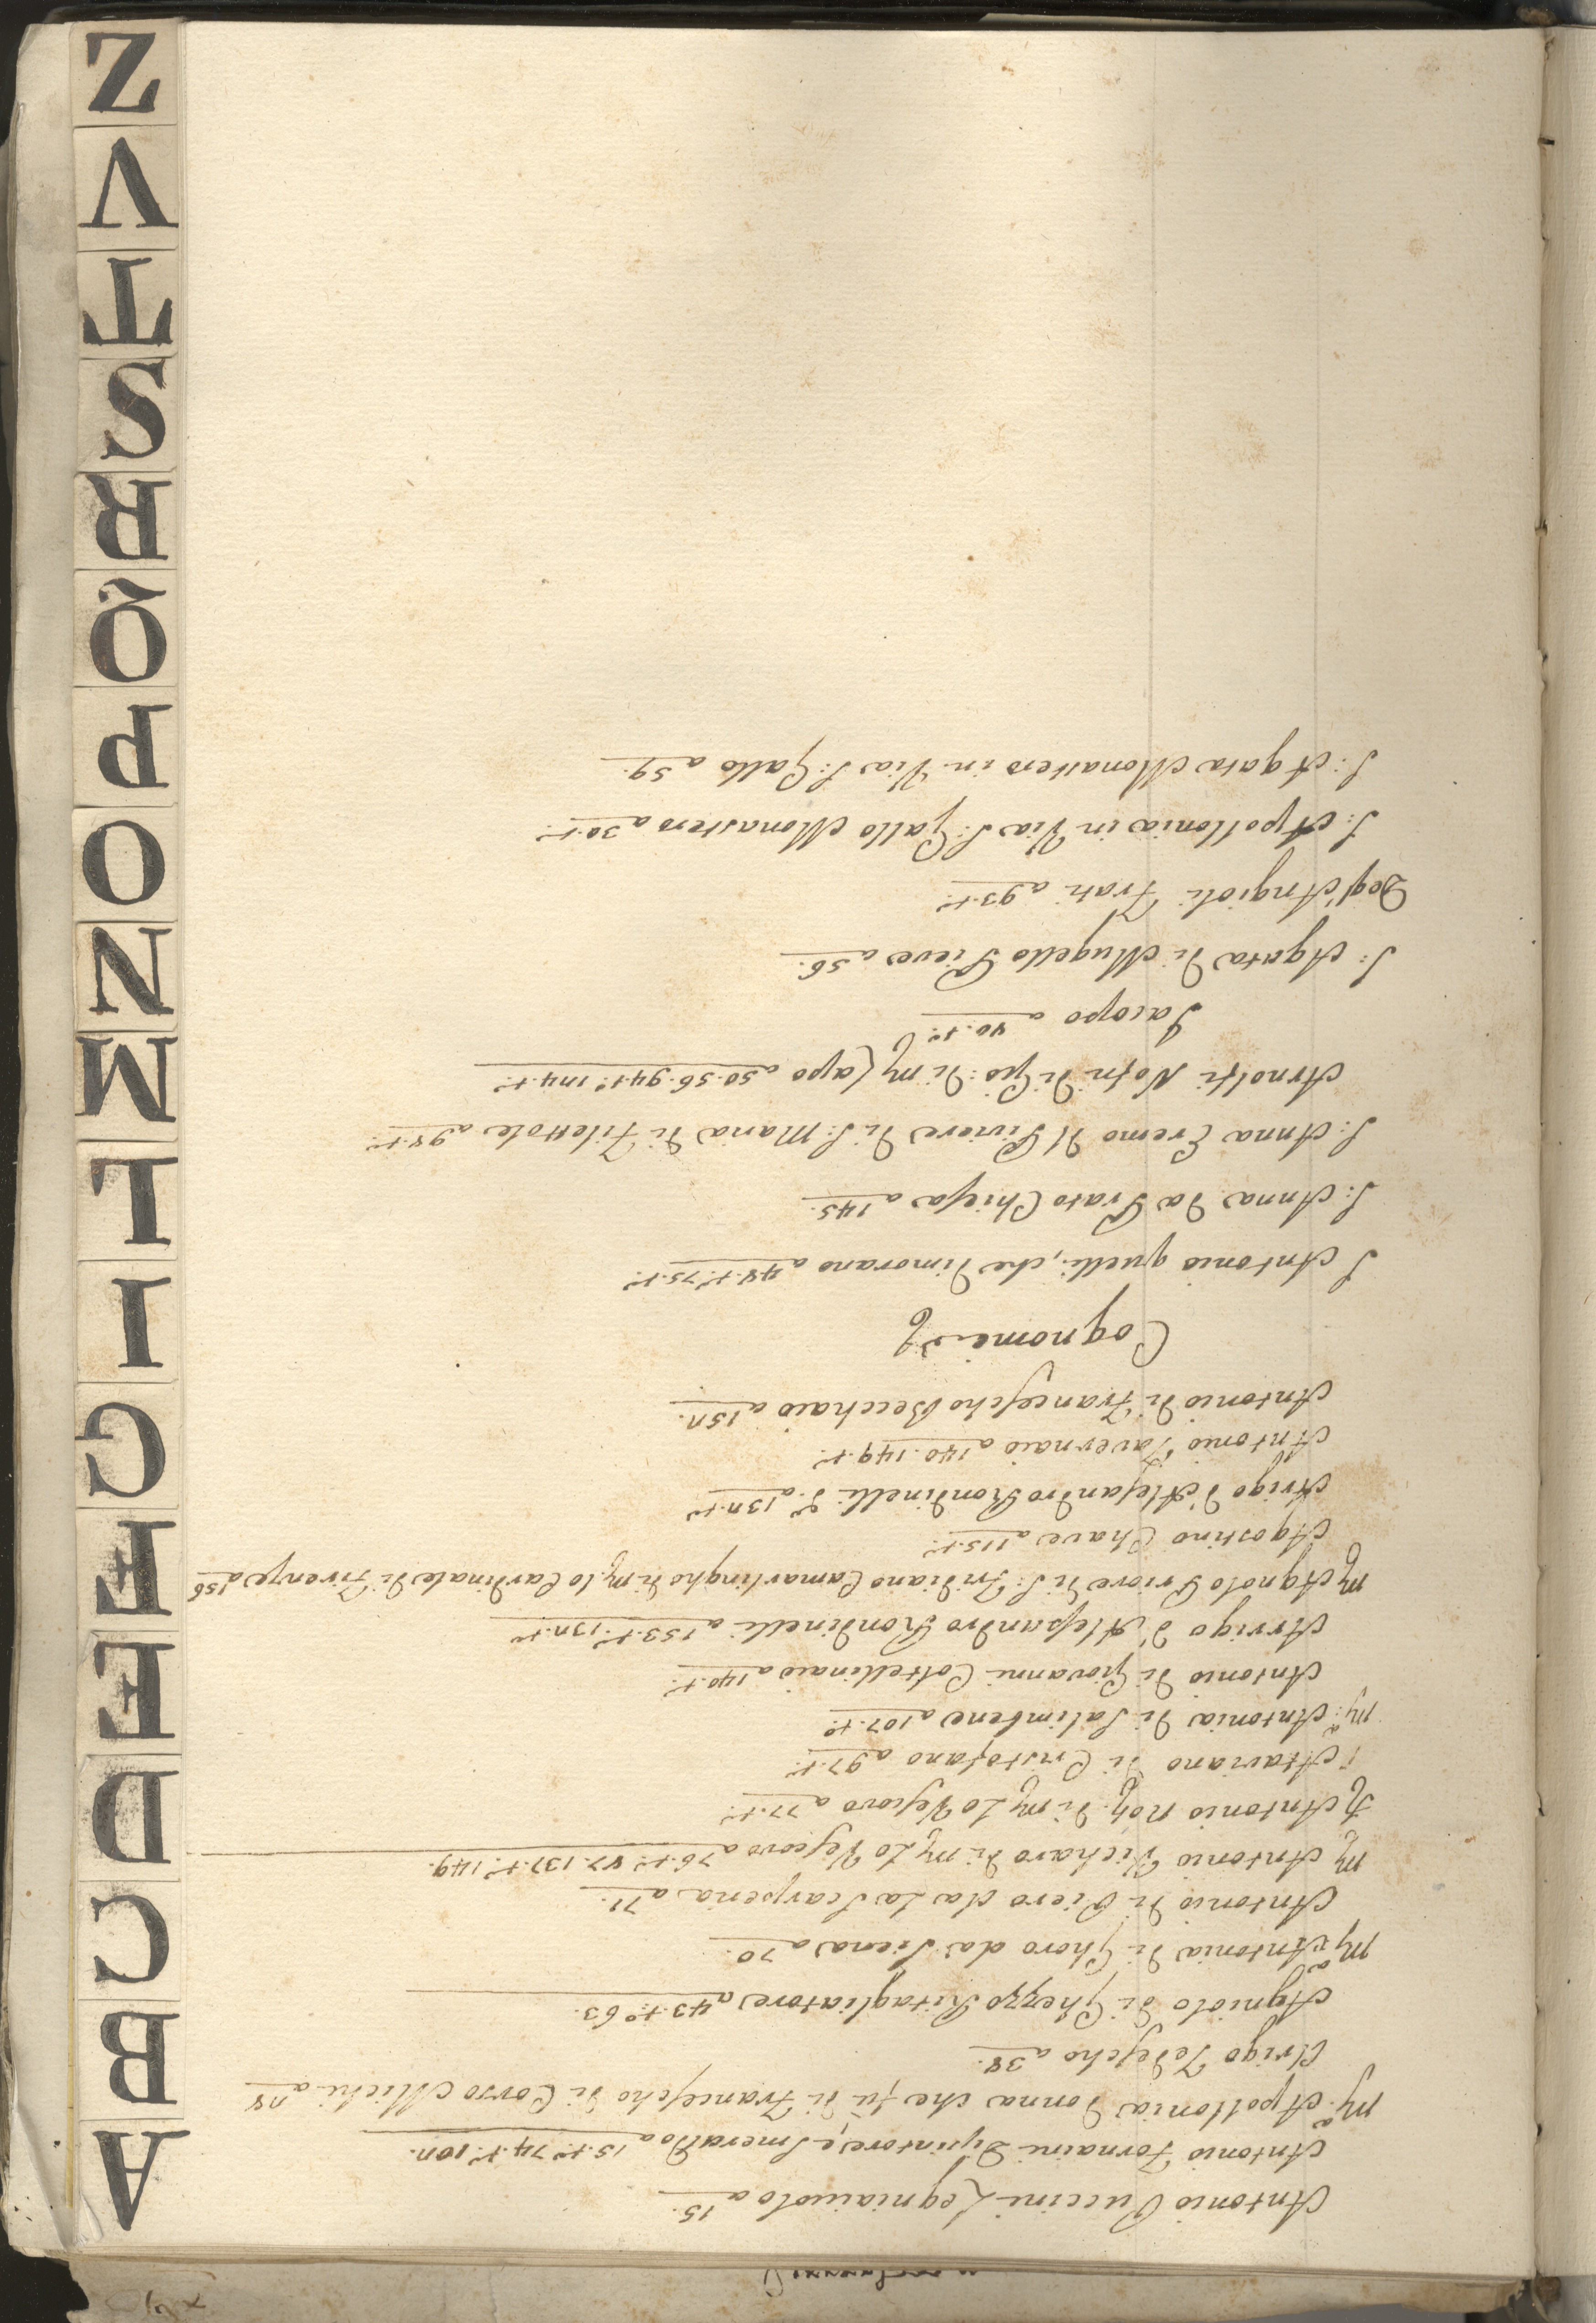 Antonio Puccini Legniaiuolo a 15.
Antonio Fornaini Dipintore, e Smeraldo a 15.to 74.to 10n.
Ma: Apollonia donna che fù di Francescho di Corso Michi a 28
Arigo Tedescho a 38.
Agniolo di Ghezzo Ritagliatore a 43.to 63.
Ma: Antonia di Ghoro da Siena a 70.
Antonio di Piero da La Scarperia a 71.
M Antonio Vichario di M Lo Vescovo a 76.to 87. 137.to 149.
Antonio Not. di M Lo Vescovo a 77.to
Ataviano di Cristofano a 97.to
Ma: Antonia di Salimbene a 107.to
Antonio di Giovanni Coltellinaio a 140.to
Arrigo d'Alessandro Rondinelli a 153.to 13n.to
M Agnolo Priore di S: Fridiano Camarlingho di M. lo Cardinale di Firenze a 156
Agostino Chave a 115.to
Arigo d'Alesandro Rondinelli a 13n.to
Antonio Tavernaio a 140. 149.to
Antonio di Francescho Becchaio a 15n.
Cognomi
S Antonio quelli, che dimorano a 48.to 75.to
S: Anna da Prato Chiesa a 145.
S: Anna Eremo Piviere di S: Maria di Filettole a 98.to
Arnolfi Nofri di Gio: di M Lapo a 50. 56. 94.to 114.to
Jacopo a 40.to
S: Agata di Mugello Pieve a 56.
Degl'Angioli Frati a 93.to
S: Apollonia in Via S: Gallo Monastero a 30.to
S: Agata Monastero in Via S: Gallo a 59.
A
B
C
D
E
F
G
I
L
M
N
O
P
Q
R
S
T
V
Z